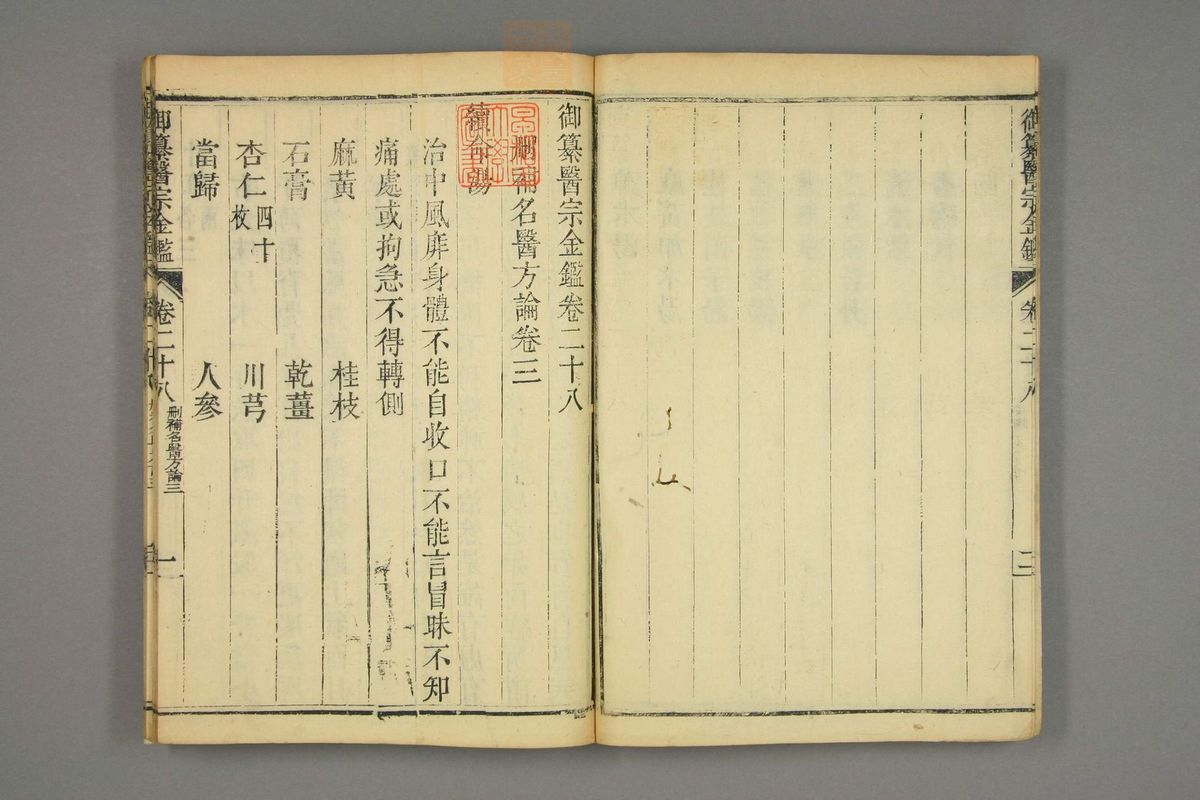 御纂醫宗金鑑 卷二十八
二
御纂醫宗金鑑卷二十八
刪補名醫方論卷三
續命湯
治中風痱身體不能自收口不能言冒昧不知
痛處或拘急不得轉側
麻黃 桂枝
石膏 乾薑
杏仁四十枚 川芎
當歸 人參
御纂醫宗金鑑 卷二十八 刪補名醫方論三 一